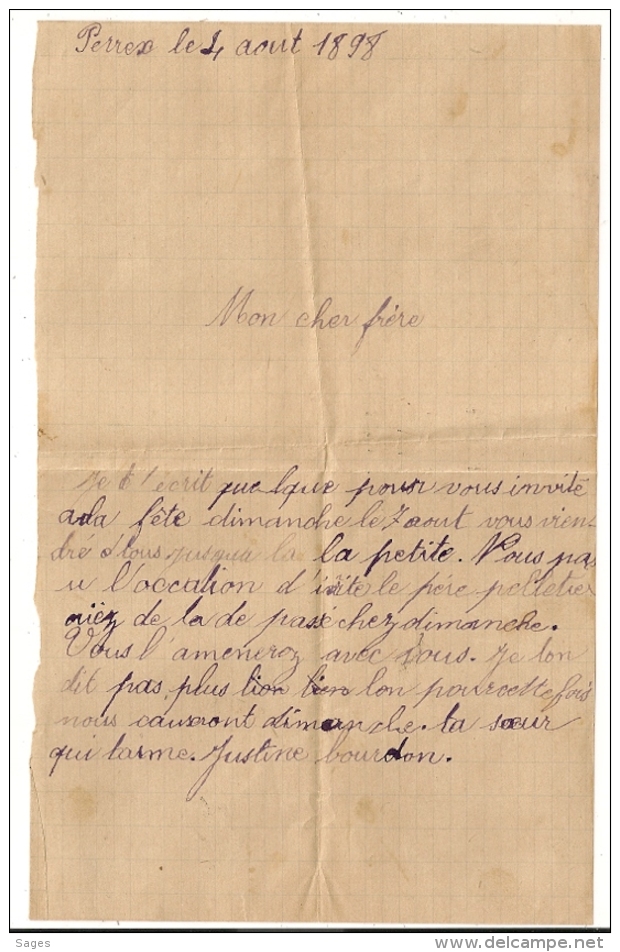 Perrex le 4 aout 1898
Mon cher frére
Je t'écrit quelque pour vous invité
a la fête dimanche le 7 aout vous vien
dré tous jusqua la la petite. Nous pas
u l'occation d' le pére pelletier
de la de passé chez dimanche.
Vous l'amenerez avec vous. Je ton
dit pas plus lon pour cette fois
nous causeront dimanche. ta sœur
qui tarme. Justine bourdon.
Sages
www.delcampe.net